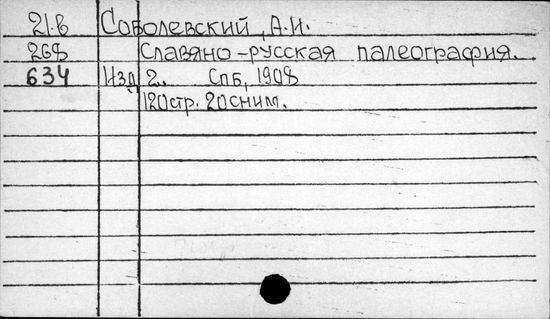 21.в Соболевский, А.И.
268 Славяно-русская палеография.
634 Изд. 2. Спб, 1908
120стр. 20сним.